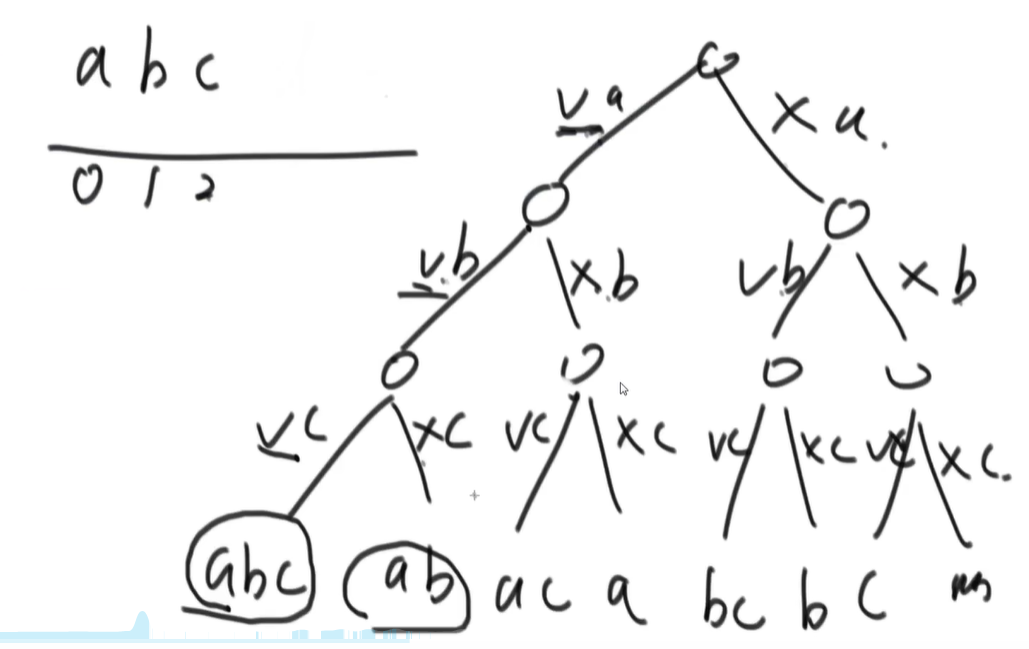 a b c
0 1 2
√ a
× a.
√ b
× b
√ b
× b
√ c
× c
√ c
× c
√ c
× c
√ c
× c.
abc
ab
ac
a
bc
b
c